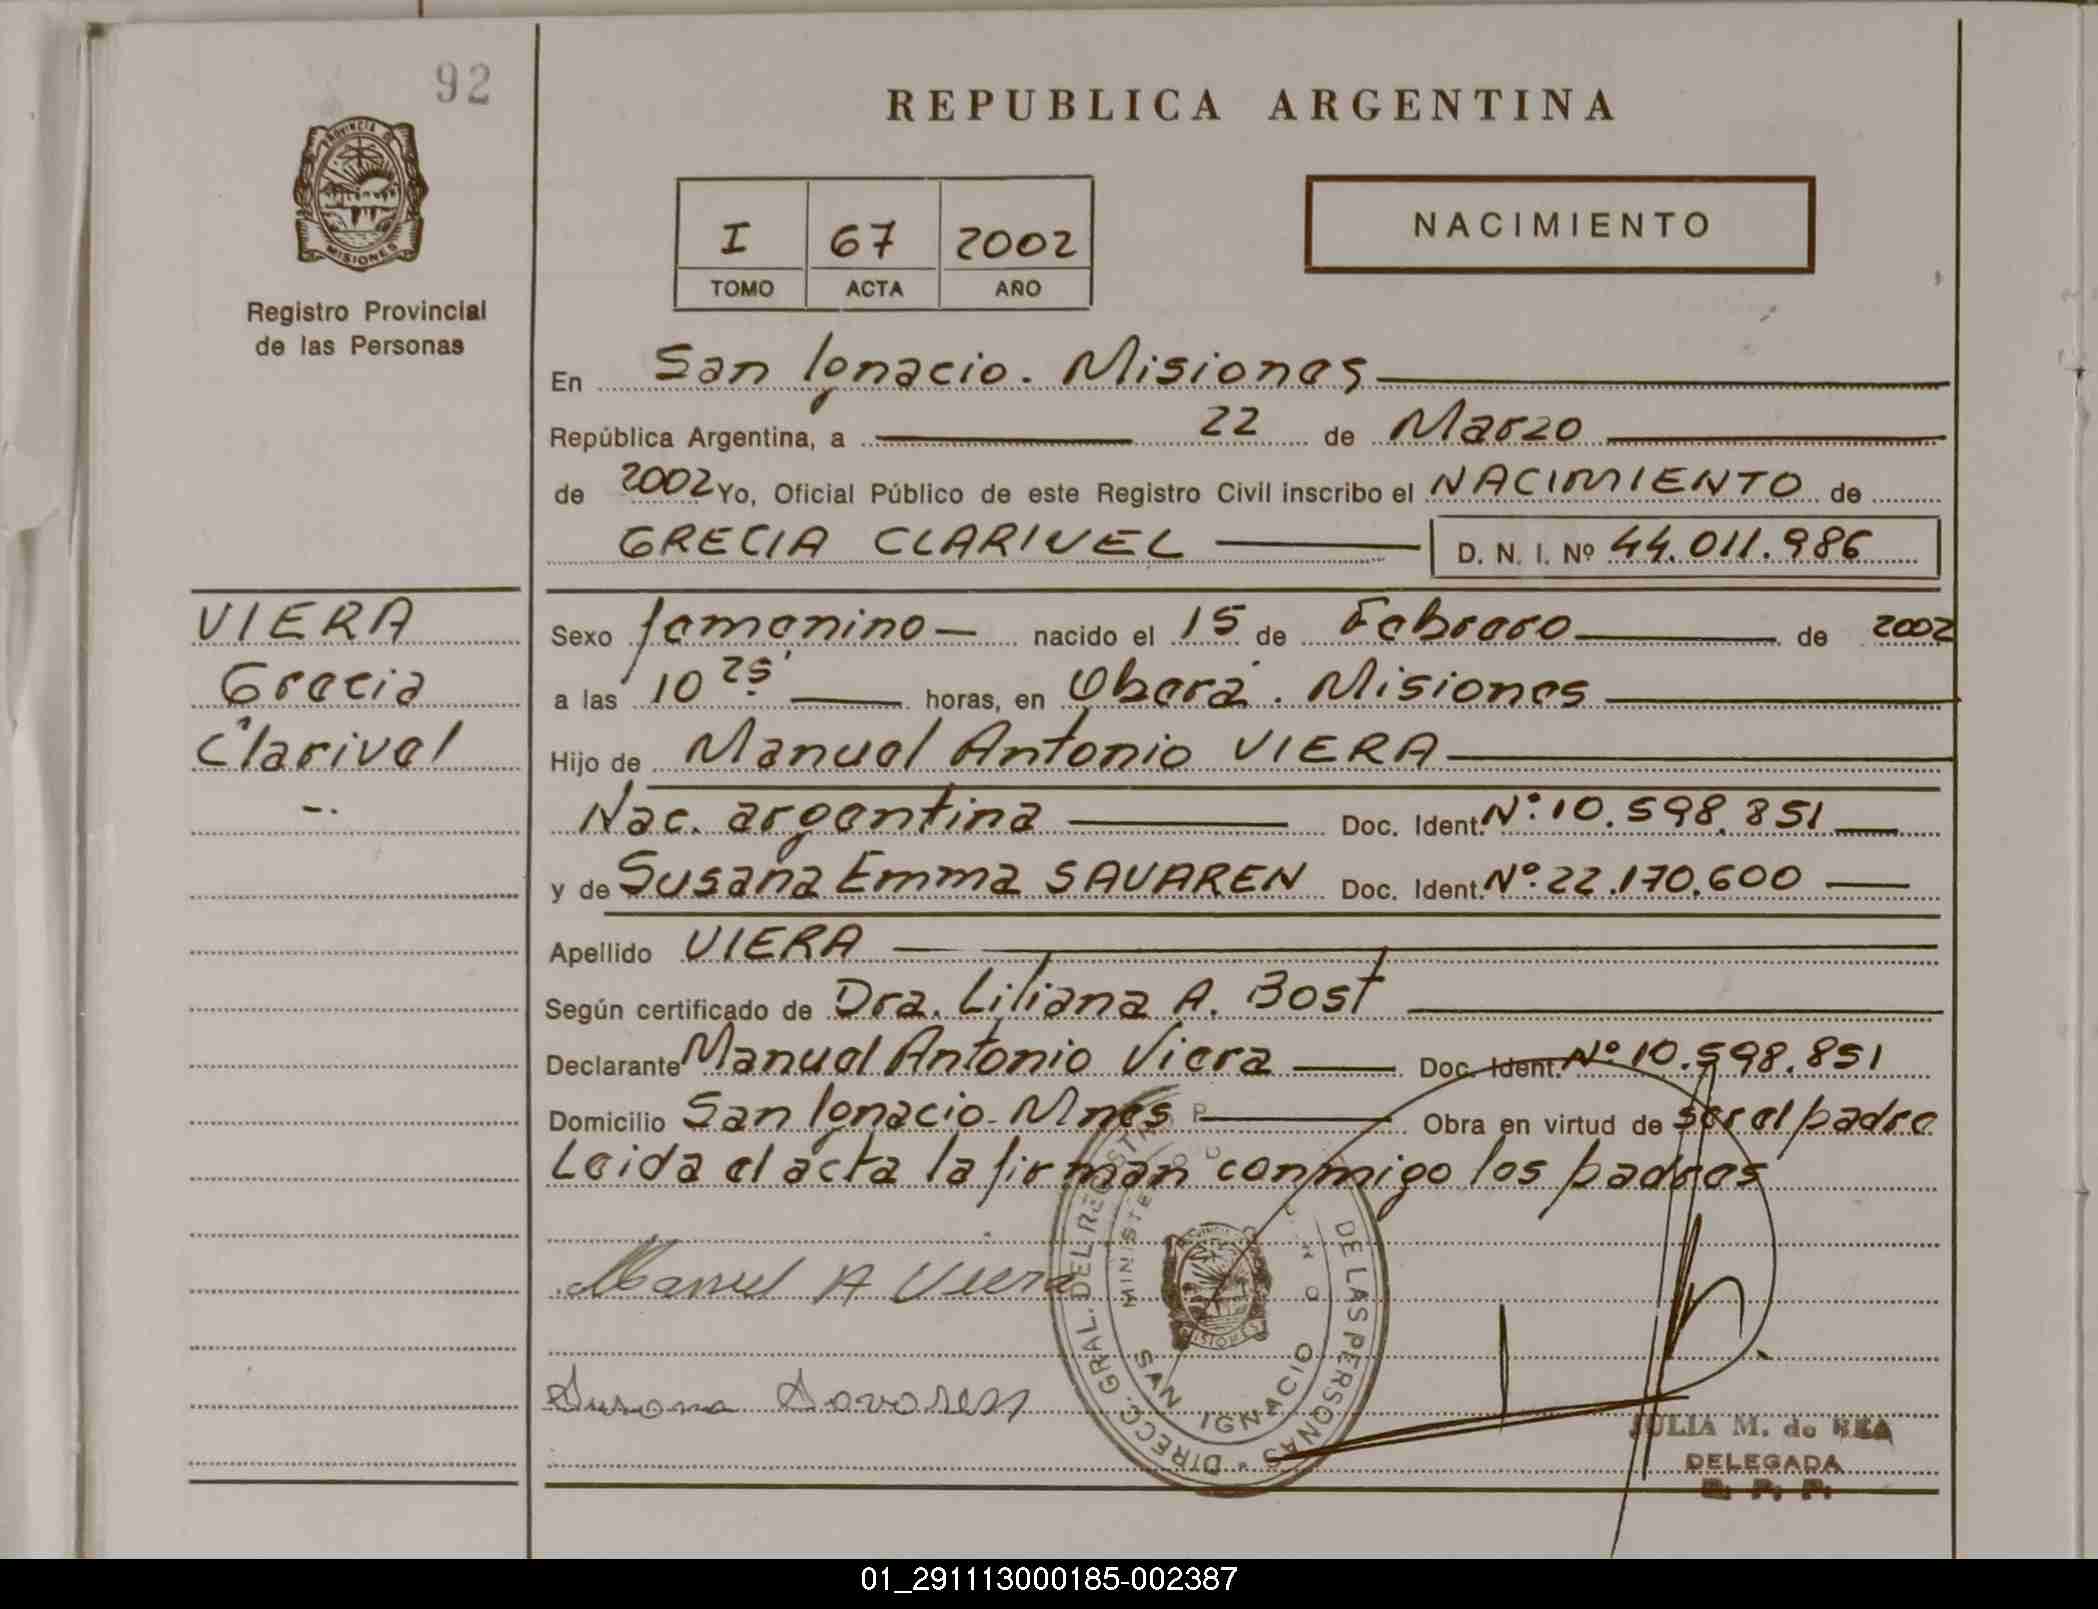 92
REPUBLICA ARGENTINA
PROVINCIA DE
MISIONES
Registro Provincial
de las Personas
NACIMIENTO
I 67 2002
TOMO ACTA AÑO
En San Ignacio. Misiones
República Argentina, a 22 de Marzo
de 2002 Yo, Oficial Público de este Registro Civil inscribo el NACIMIENTO de
GRECIA CLARIVEL D. N. I. Nº 44.011.986
VIERA
Grecia
Clarivel
Sexo femenino nacido el 15 de Febrero de 2002
a las 10 25' horas, en Oberá. Misiones
Hijo de Manuel Antonio VIERA
Nac. argentina Doc. Ident. Nº 10.598.851
y de Susana Emma SAVAREN Doc. Ident. Nº 22.170.600
Apellido VIERA
Según certificado de Dra. Liliana A. Bost
Declarante Manuel Antonio Viera Doc. Ident. Nº 10.598.851
Domicilio San Ignacio-Mnes Obra en virtud de ser el padre
Leida el acta la firman conmigo los padres
Manuel A Viera
Susana Savaren
DIRECC. GRAL. DEL REGISTRO DE LAS PERSONAS
SAN IGNACIO
MISIONES
JULIA M. de REA
DELEGADA
R. P. P.
01_291113000185-002387